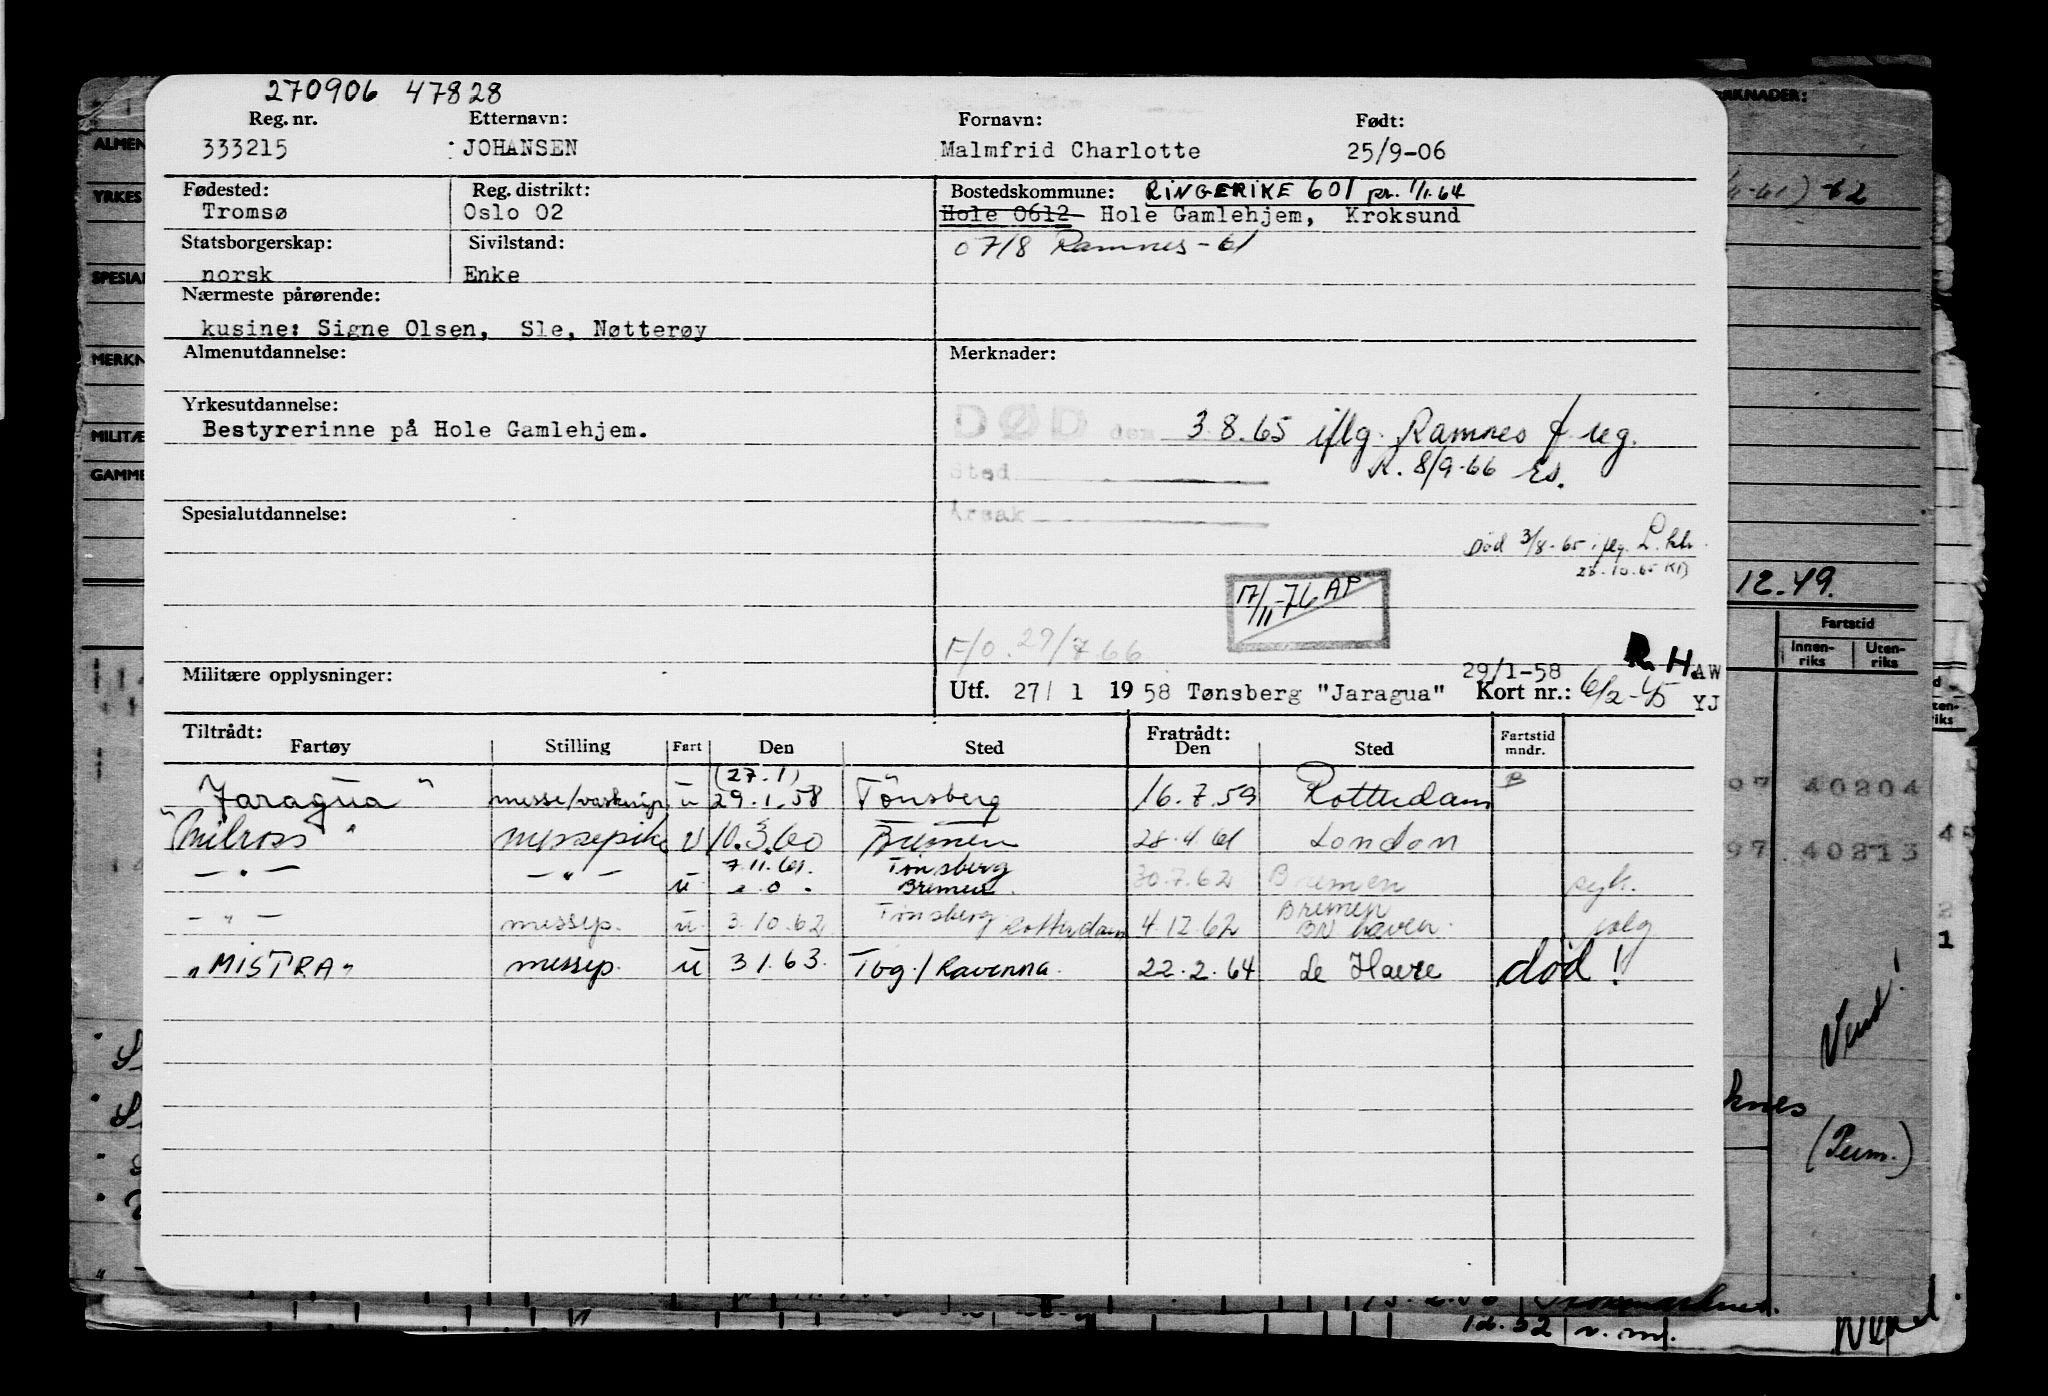 270906 47828
Reg. nr. Etternavn: Fornavn: Født:
333215 JOHANSEN Malmfrid Charlotte 25/9-06
Fødested: Reg. distrikt: Bostedskommune: RINGERIKE 601 pr. 1/1.64
Tromsø Oslo 02 Hole 0612 Hole Gamlehjem, Kroksund
Statsborgerskap: Sivilstand: 07/8 Ramnes-61
norsk Enke
Nærmeste pårørende:
kusine: Signe Olsen, Sle, Nøtterøy
Almenutdannelse: Merknader:
Yrkesutdannelse:
Bestyrerinne på Hole Gamlehjem.
DØD den 3.8.65 iflg. Ramnes f reg.
Sted R. 8/9-66 Es.
Årsak
Spesialutdannelse:
Død 3/8-65 iflg. L.
28.10.65
17/11-76 AP
F/O. 29/7.66
R. H. AW
Militære opplysninger: 29/1-58
Utf. 27/ 1 1958 Tønsberg "Jaragua" Kort nr.: 6/2-45 YJ
Tiltrådt: Fratrådt:
Fartøy Stilling Fart Den Sted Den Sted Fartstid mndr.
(27.1)
"Jaragua" messe/ u 29.1.58 Tönsberg 16.7.59 Rotterdam B
"Milross" messepike u 10.3.60 Bremen 28.4.61 London
— " — — " — 7.11.61. Tönsberg
u Bremen. 30.7.62 Bremen syk.
— " — messep. u 3.10.62 Tönsberg Rotterdam 4.12.62 Bremen BR haven valg
"MISTRA" messep. u 3 1.63. Tbg./Ravenna 22.2.64 Le Havre død!
ALMEN
YRKES
SPESIAL
MERKN
MILITÆ
GAMME
RKNADER:
12.49.
Fartstid
Innen-riks Uten-riks
40204
40213
Vend!
knes
(Perm.)
12.52